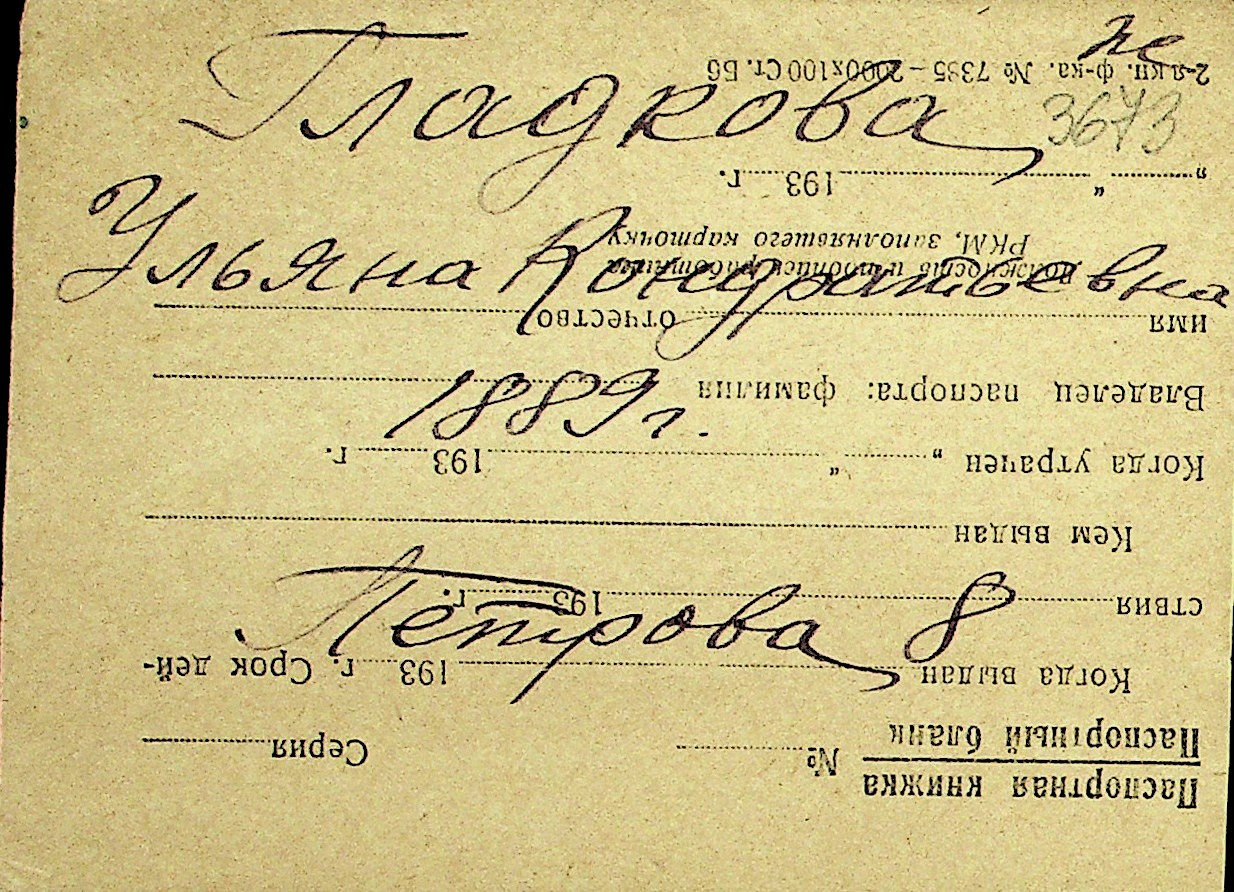 не
Гладкова 3673
Ульяна Кондратьевна
1889 г.
Петрова 8
Паспортная книжка
Паспортный бланк
№ Серия
Когда выдан 193 г. Срок дей-
ствия 193 г.
Кем выдан
Когда утрачен „ “ 193 г.
Владелец паспорта: фамилия
имя отчество
Должность и подпись работника
РКМ, заполнявшего карточку
„ “ 193 г.
2-я кп. ф-ка. № 7395 — 2000х100 Ст. Б6